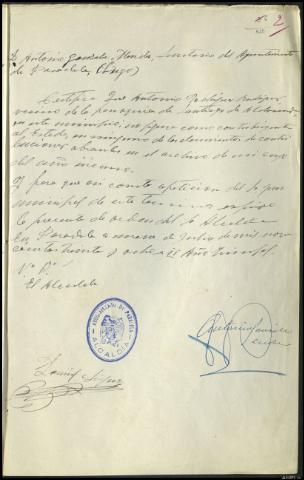 Nº 2
D. Antonio Gonzalez Mendez, Secretario del Ayuntamiento
de Paradela, (Lugo)
Certifico: Que Antonio Rodriguez Rodriguez
vecino de la parroquia de Santiago de
en este municipio, no figura como contribuyente
al Estado, en ninguno de los documentos de contri
buciones obrantes en el archivo de mi cargo
del año
Y para que así conste a peticion del Sr. Juez
municipal de este termino expido
la presente de orden del Sr. Alcalde
en Paradela a nueve de Julio de mil nove
cientos treinta y ocho. II Año Triunfal.
Vº Bº
El Alcalde
AYUNTAMIENTO DE PARADELA
ALCALDIA
Antonio Gonzalez
Mendez